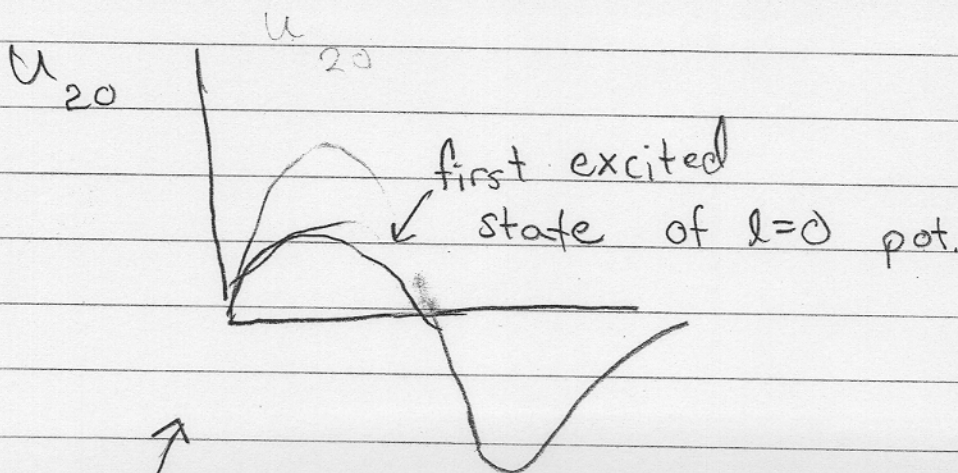 u
20
U
20
first excited
state of l=0 pot.